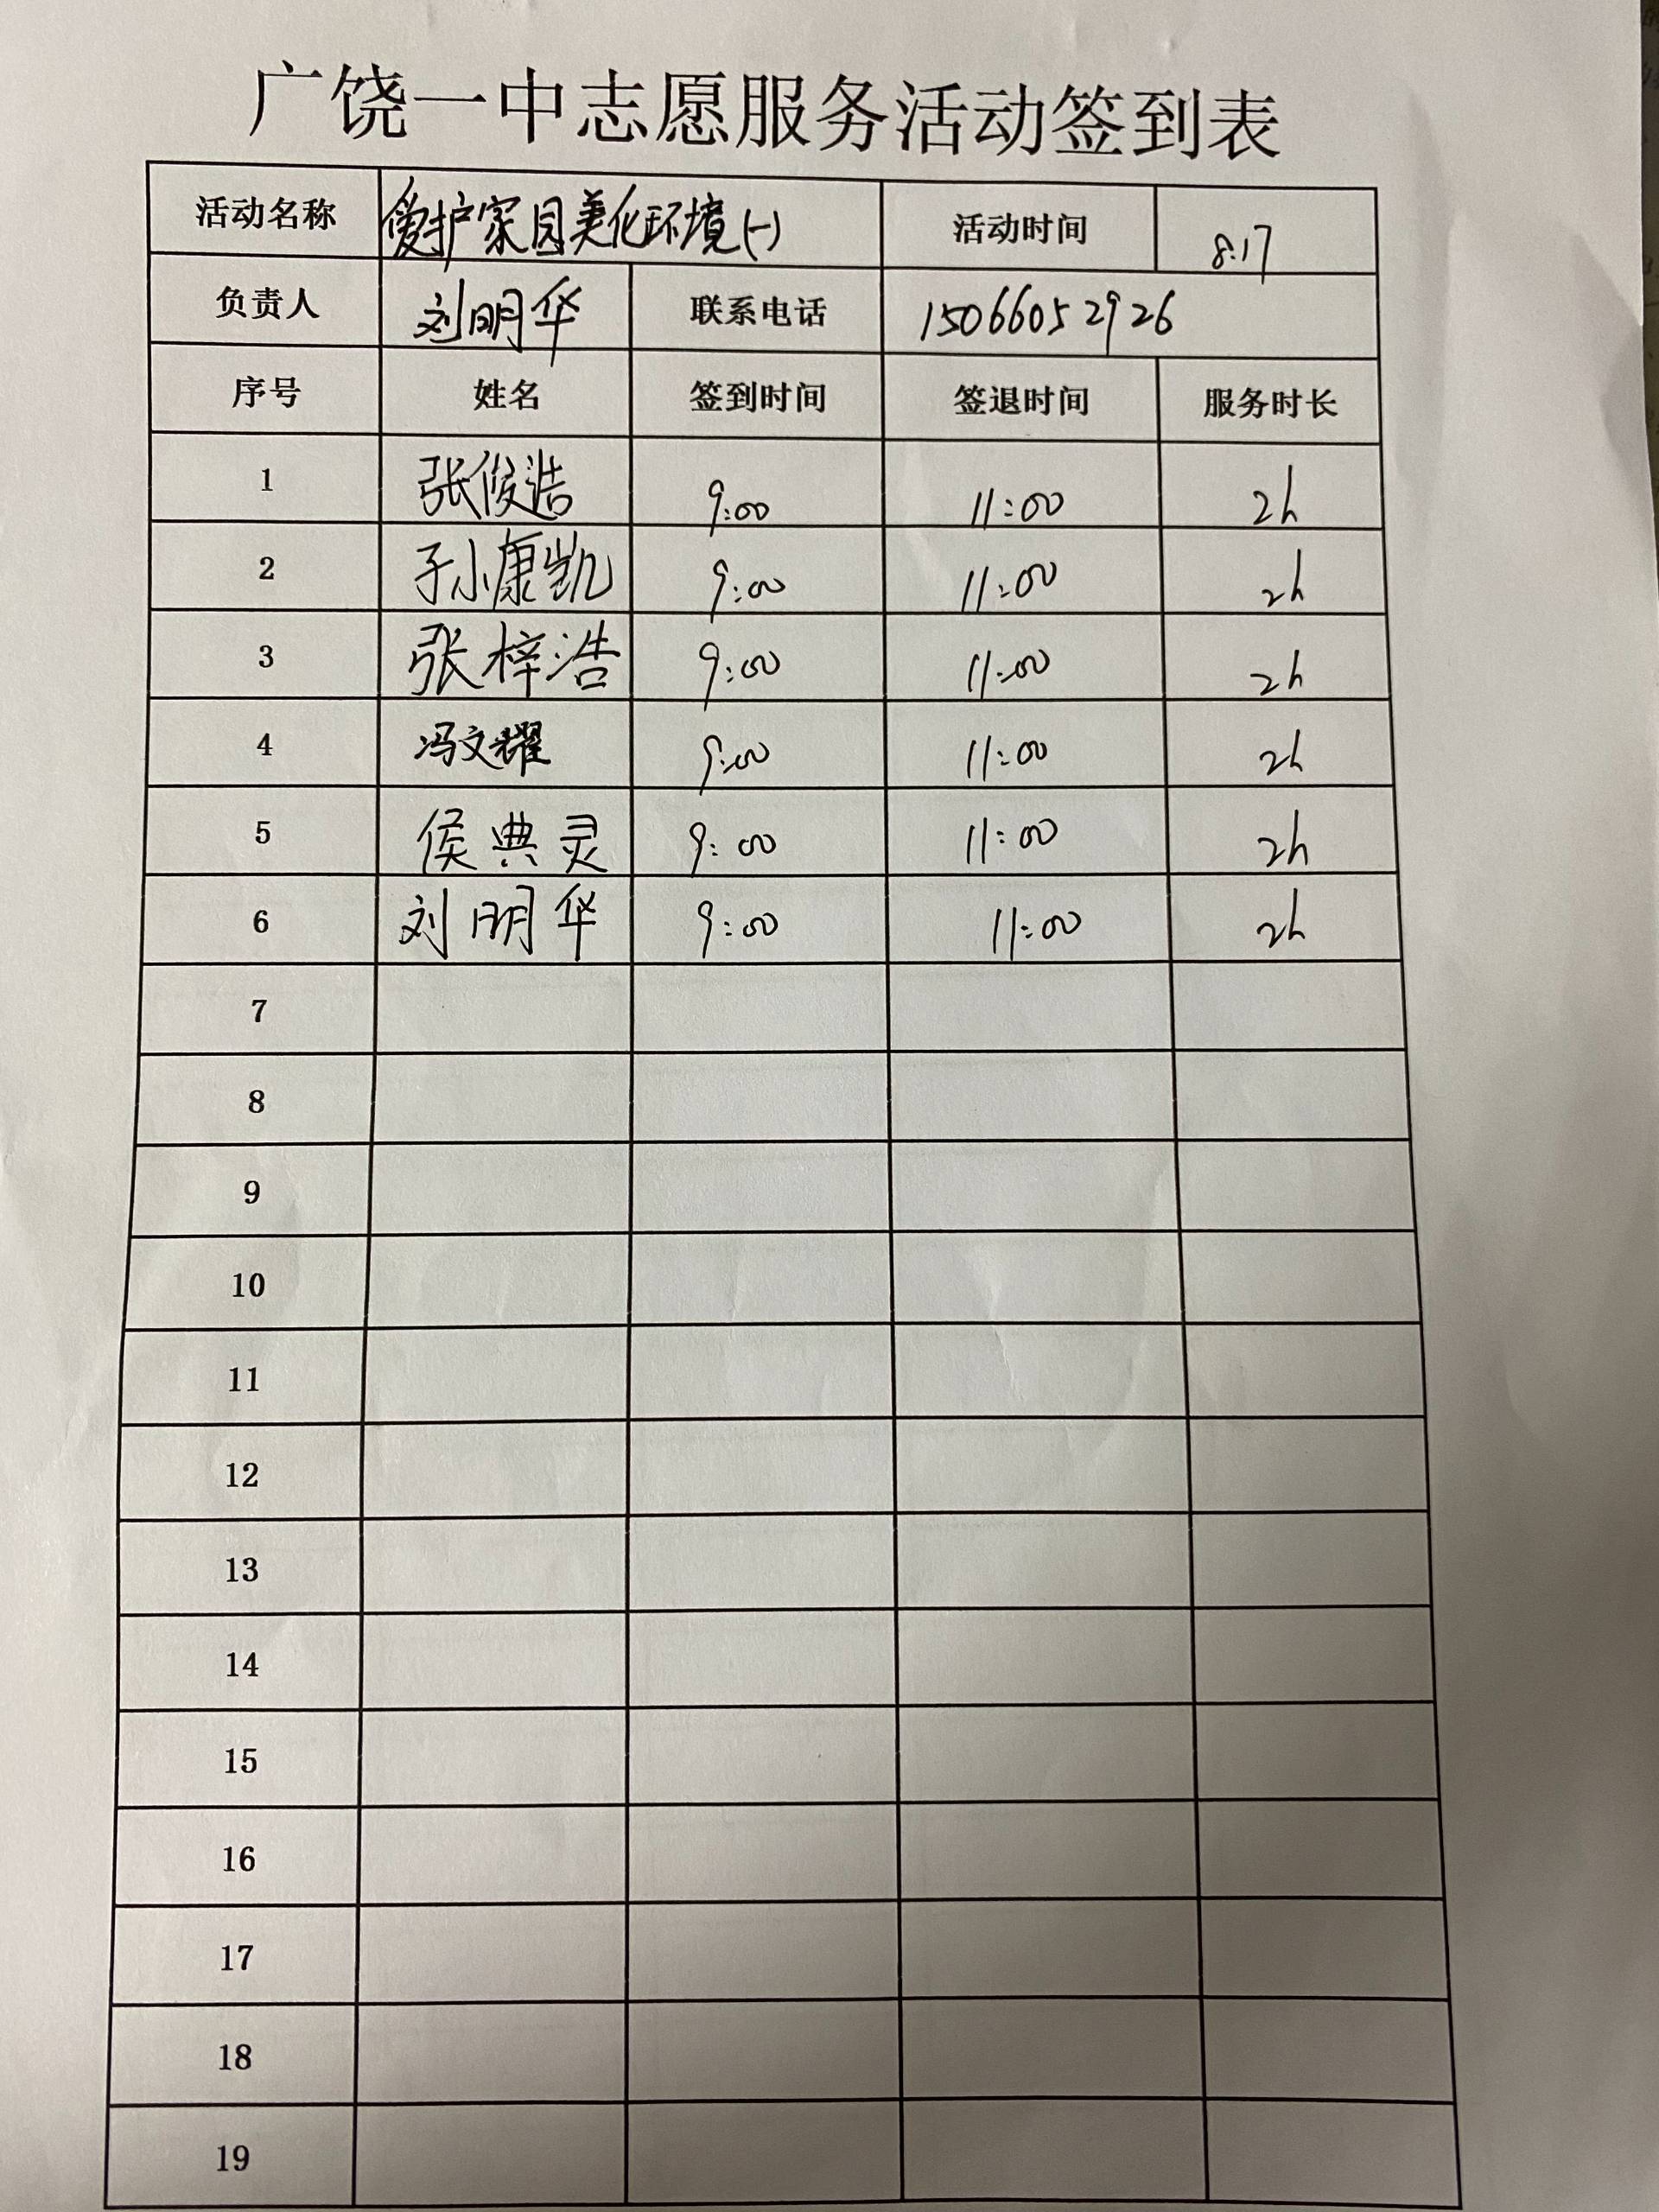 广饶一中志愿服务活动签到表
活动名称 爱护家园美化环境(一) 活动时间 8.17
负责人 刘明华 联系电话 15066052926
序号 姓名 签到时间 签退时间 服务时长
1 张俊浩 9:00 11:00 2h
2 孙康凯 9:00 11:00 2h
3 张梓浩 9:00 11:00 2h
4 冯文耀 9:00 11:00 2h
5 侯典灵 9:00 11:00 2h
6 刘明华 9:00 11:00 2h
7
8
9
10
11
12
13
14
15
16
17
18
19